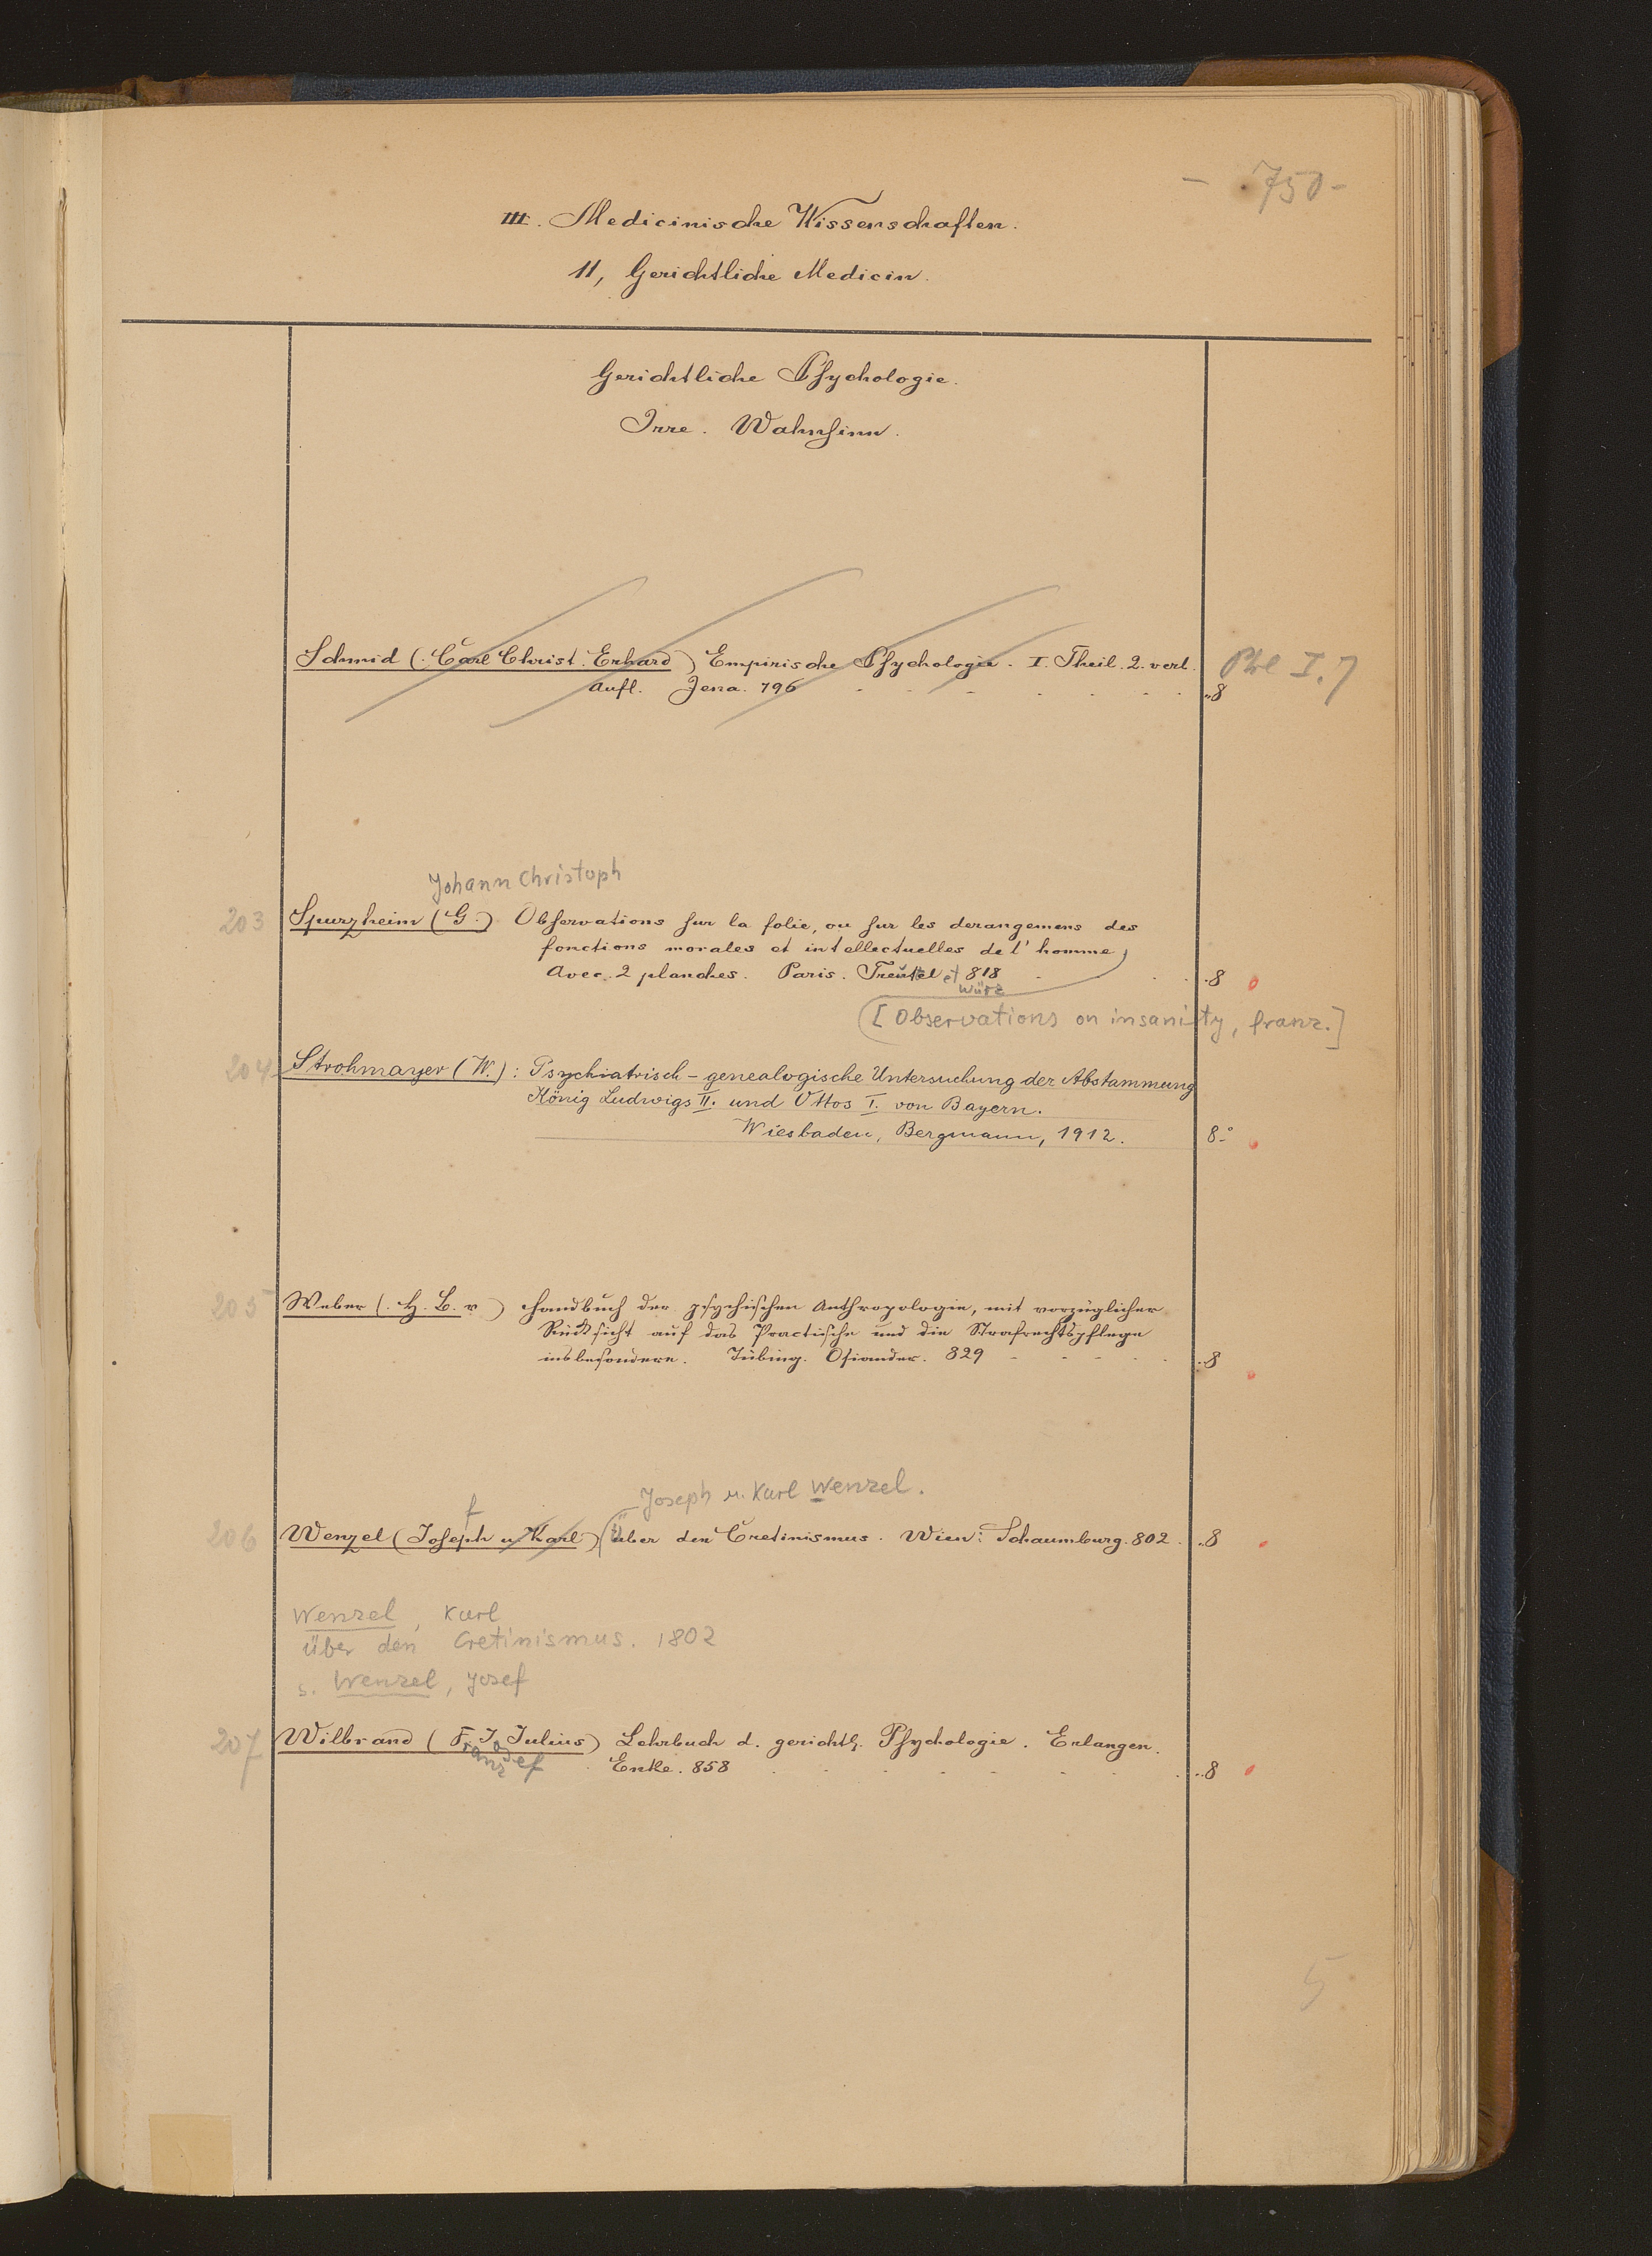 - 750 -
III. Medicinische Wissenschaften.
11, Gerichtliche Medicin.
Gerichtliche Psychologie.
Irre. Wahnsinn.
Schmid (Carl Christ. Erhard) Empirische Psychologie. I. Theil. 2. verl. Phl I. 7
Aufl. Jena. 796 8
Johann Christoph
203 Spurzheim (G.) Observations sur la folie, ou sur les derangemens des
fonctions morales et intellectuelles de l'homme,
Avec 2 planches. Paris. Treuttel et 818 8
Würz
[Observations on insanity, franz.]
204 Strohmayer (W.): Psychiatrisch-genealogische Untersuchung der Abstammung
König Ludwigs II. und Ottos I. von Bayern.
Wiesbaden, Bergmann, 1912. 8°
205 Weber (H. B. v) Handbuch der psychischen Anthropologie, mit vorzüglicher
Rücksicht auf das Practische und die Strafrechtspflege
insbesondere. Tübing. Osiander. 829 8
Joseph u. Karl Wenzel.
f
206 Wenzel (Joseph u Karl) über den Cretinismus. Wien: Schaumburg. 802. 8
Wenzel, Karl
über den Cretinismus. 1802
s. Wenzel, Josef
207 Wilbrand (F. J. Julius) Lehrbuch d. gerichtl. Psychologie. Erlangen.
Franz Josef Enke. 858 8
5